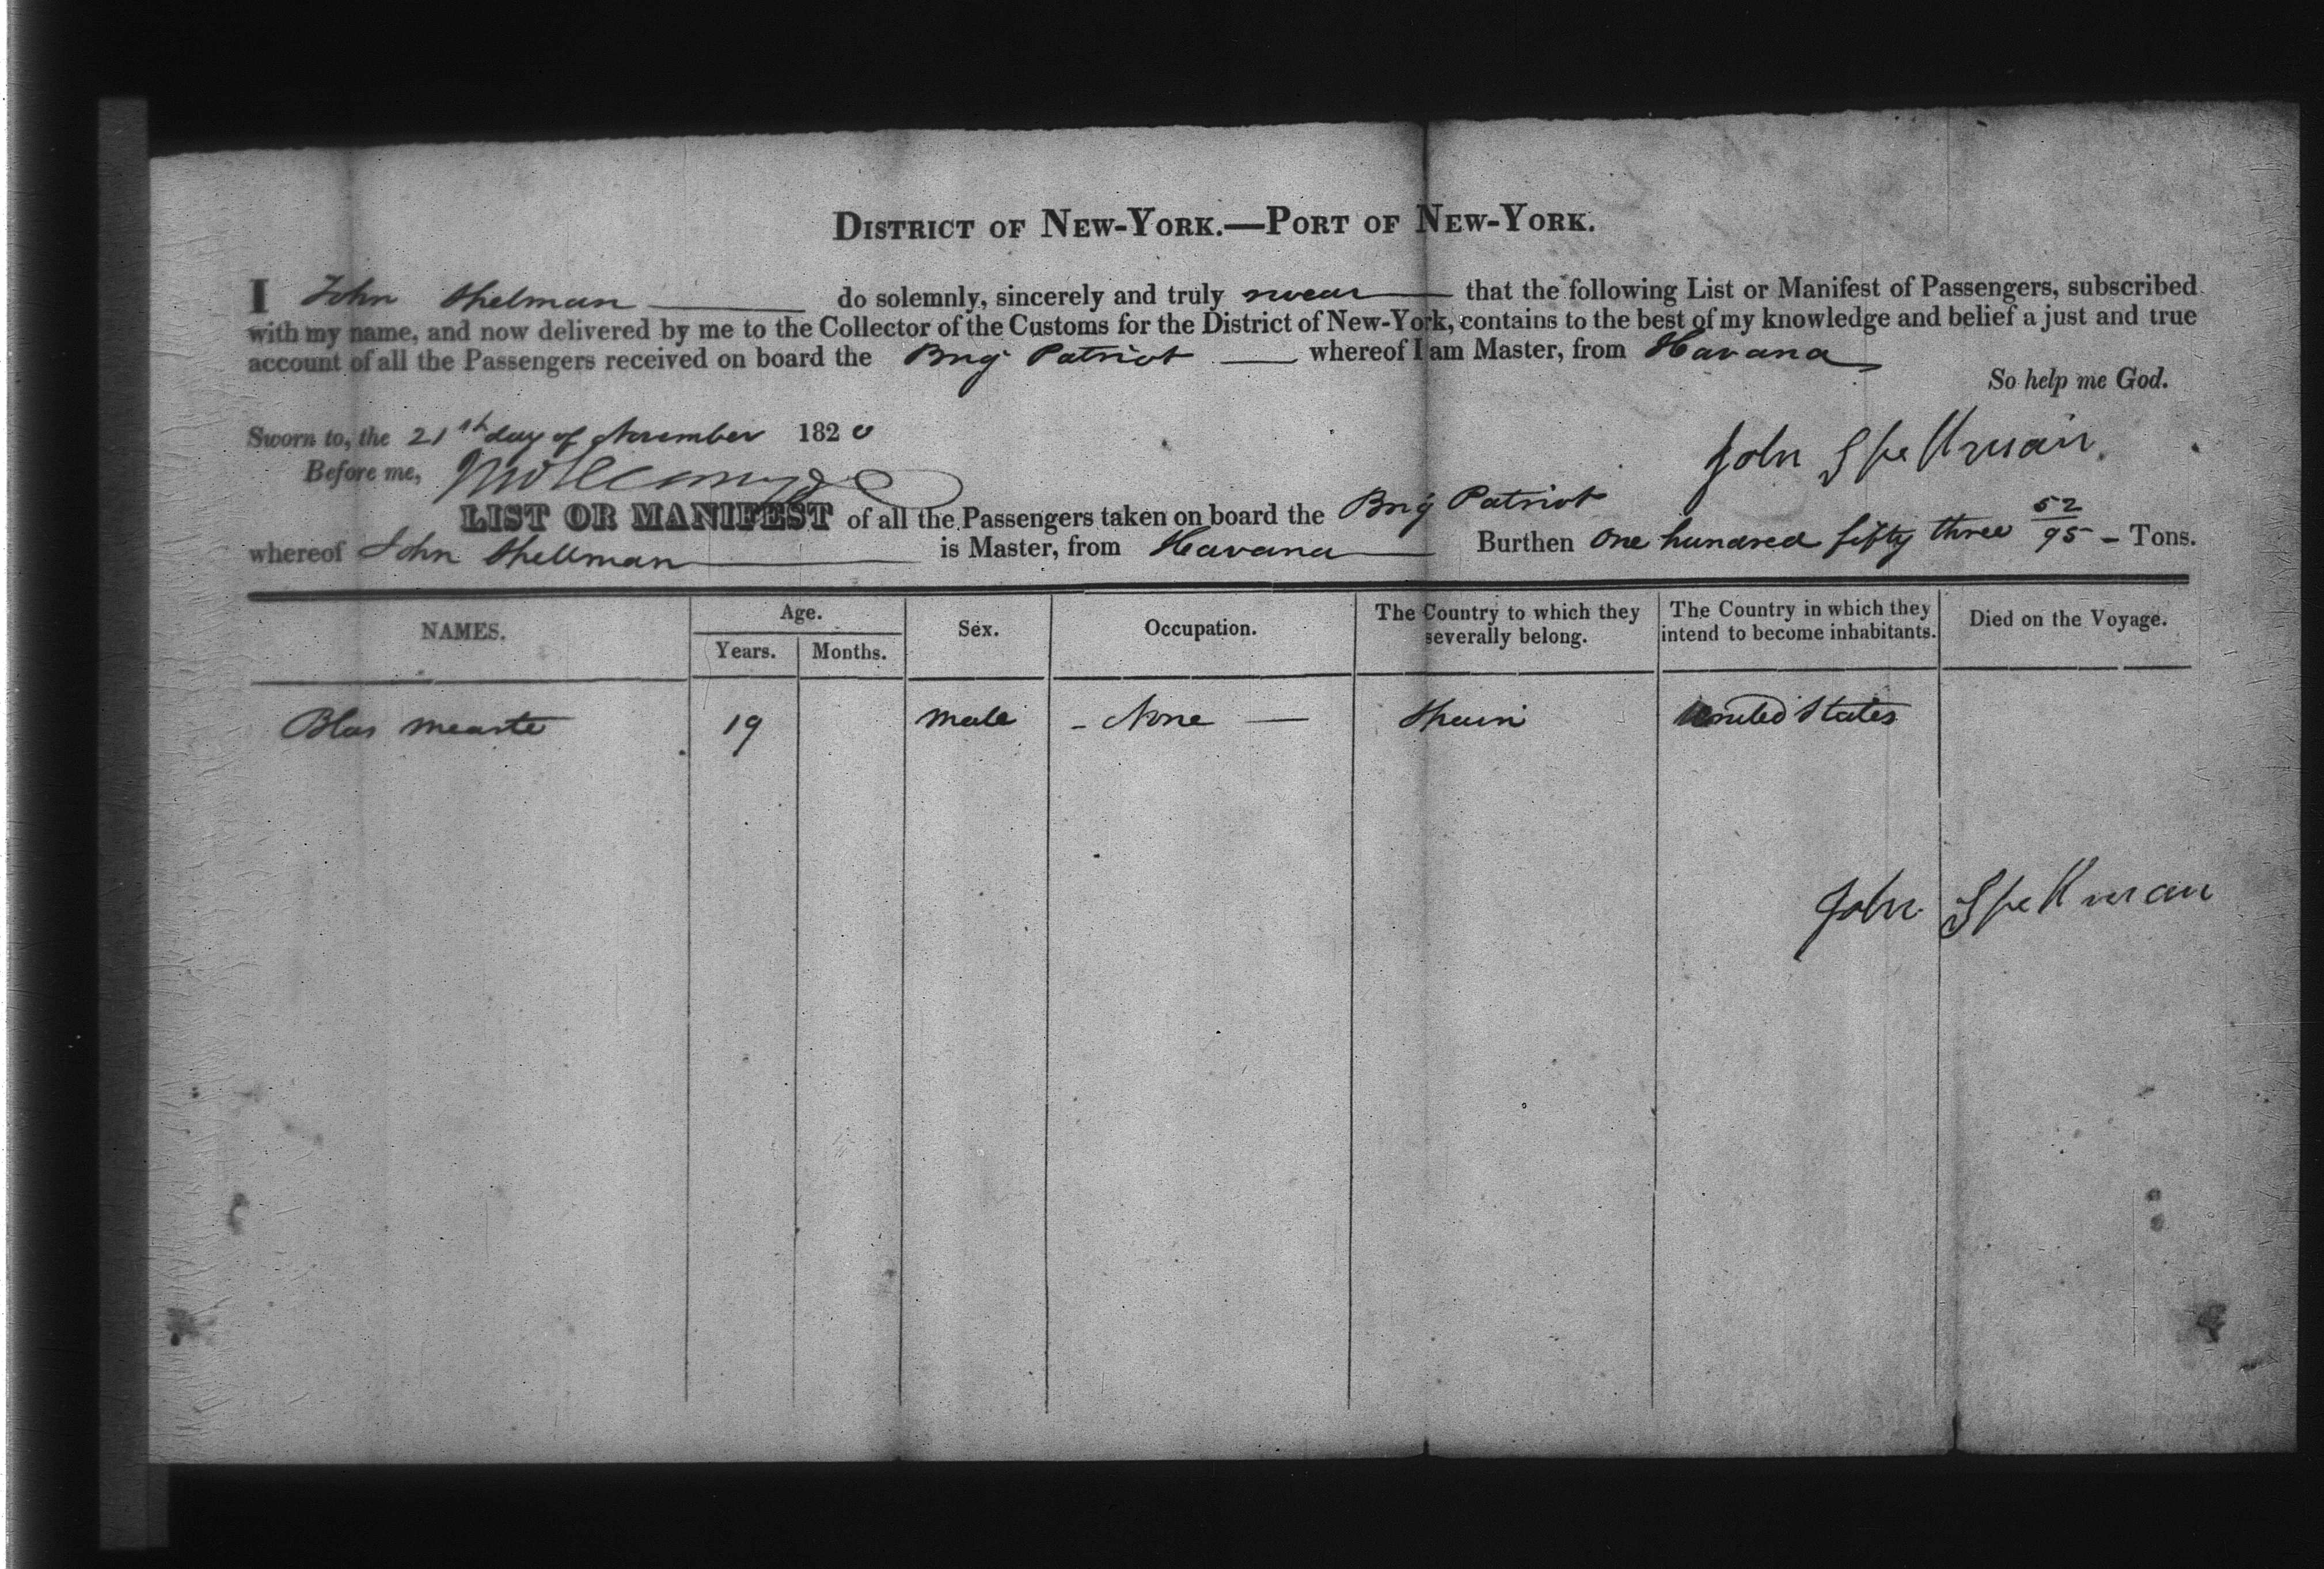 DISTRICT OF NEW-YORK.—PORT OF NEW-YORK.
I John Spelman do solemnly, sincerely and truly swear that the following List or Manifest of Passengers, subscribed
with my name, and now delivered by me to the Collector of the Customs for the District of New-York, contains to the best of my knowledge and belief a just and true
account of all the Passengers received on board the Brig Patriot whereof I am Master, from Havana
So help me God.
Sworn to, the 21st day of November 1820
John Spellman
Before me,
LIST OR MANIFEST of all the Passengers taken on board the Brig Patriot
whereof John Spellman is Master, from Havana Burthen One hundred fifty three 52/95 - Tons.
NAMES. Age. Years. Months. Sex. Occupation. The Country to which they severally belong. The Country in which they intend to become inhabitants. Died on the Voyage.
Blas 19 Male - None — Spain United States
John Spellman